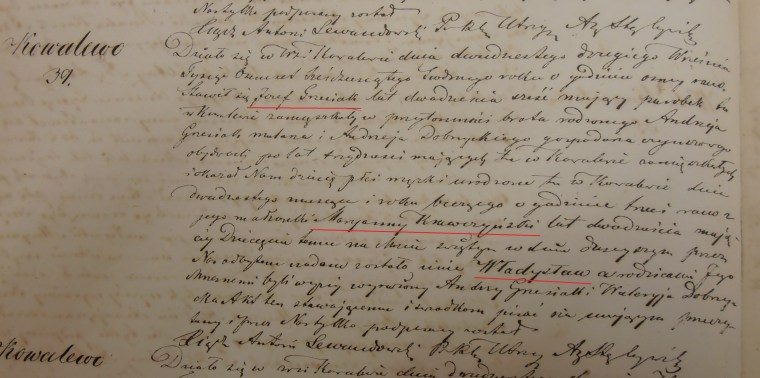 Nostylko podpisany został
Xiądz Antoni Lewandowski
Kowalewo
39.
Działo się w Wsi Kowalewie dnia dwudziestego drugiego Września
Tysiąc Ośmset sześćdziesiątego roku o godzinie ósmey rano
Stawił się Josef Gresiak lat dwadzieścia sześć mający parobek tu
w Kowalewie zamieszkały w przytomności brata rodzonego Andrzeja
Gresiak i Andrzeja Dobryckiego gospodarza czynszowego
obydwóch po lat trzydzieści mających tu w Kowalewie zamieszkałych
i okazał Nam dziecię płci męzki urodzone tu w Kowalewie dnia
dwudziestego miesiąca i roku bieżącego o godzinie trzeci rano z
jego małżonki Maryanny Krawczyński lat dwadzieścia mają
cy Dziecięciu temu na Chrzcie świętym w dniu dzisieyszym przez
Nas odbytem nadane zostało imie Władysław a rodzicami Jego
Chrzesnemi byli wyżej Andrzy Gresiak i Waleryja Dobryc
ka Akt ten stawaiącemu i świadkom pisać nie umiejącym
przez Nostylko podpisany został
Xiądz Antoni Lewandowski
Kowalewo
Działo się w wsi Kowalewie dnia